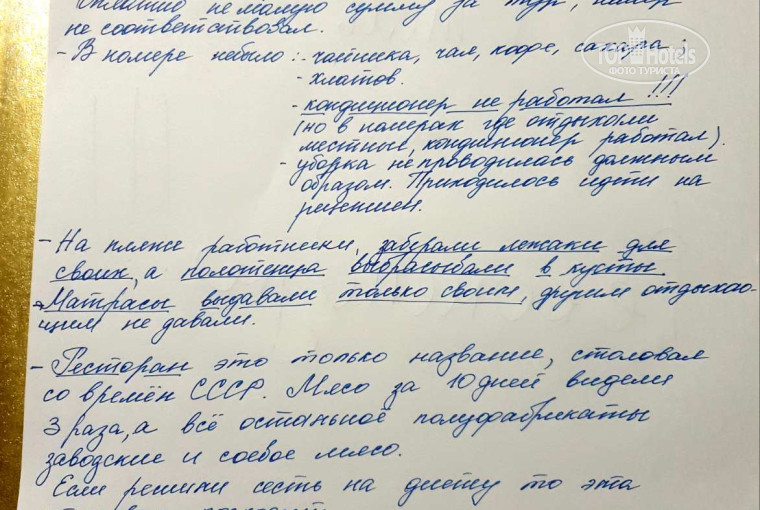 не малую сумму за тур, номер
не соответствовал.
- В номере небыло: - чайника, чая, кофе, сахара;
- халатов.
- кондиционер не работал!!!
(но в номерах где отдыхали
местные, кондиционер работал).
- уборка не проводилась должным
образом. Приходилось идти на
рецепшен.
- На пляже работники, заберали лежаки для
своих, а полотенца выбрасывали в кусты
Матрасы выдавали только своим, другим отдыхаю-
щим не давали.
- Ресторан это только название, столовая
со времён СССР. Мясо за 10 дней видели
3 раза, а всё остальное полуфабрикаты
заводские и соевое мясо.
Если решили сесть на диету то эта
TopHotels
ФОТО ТУРИСТА